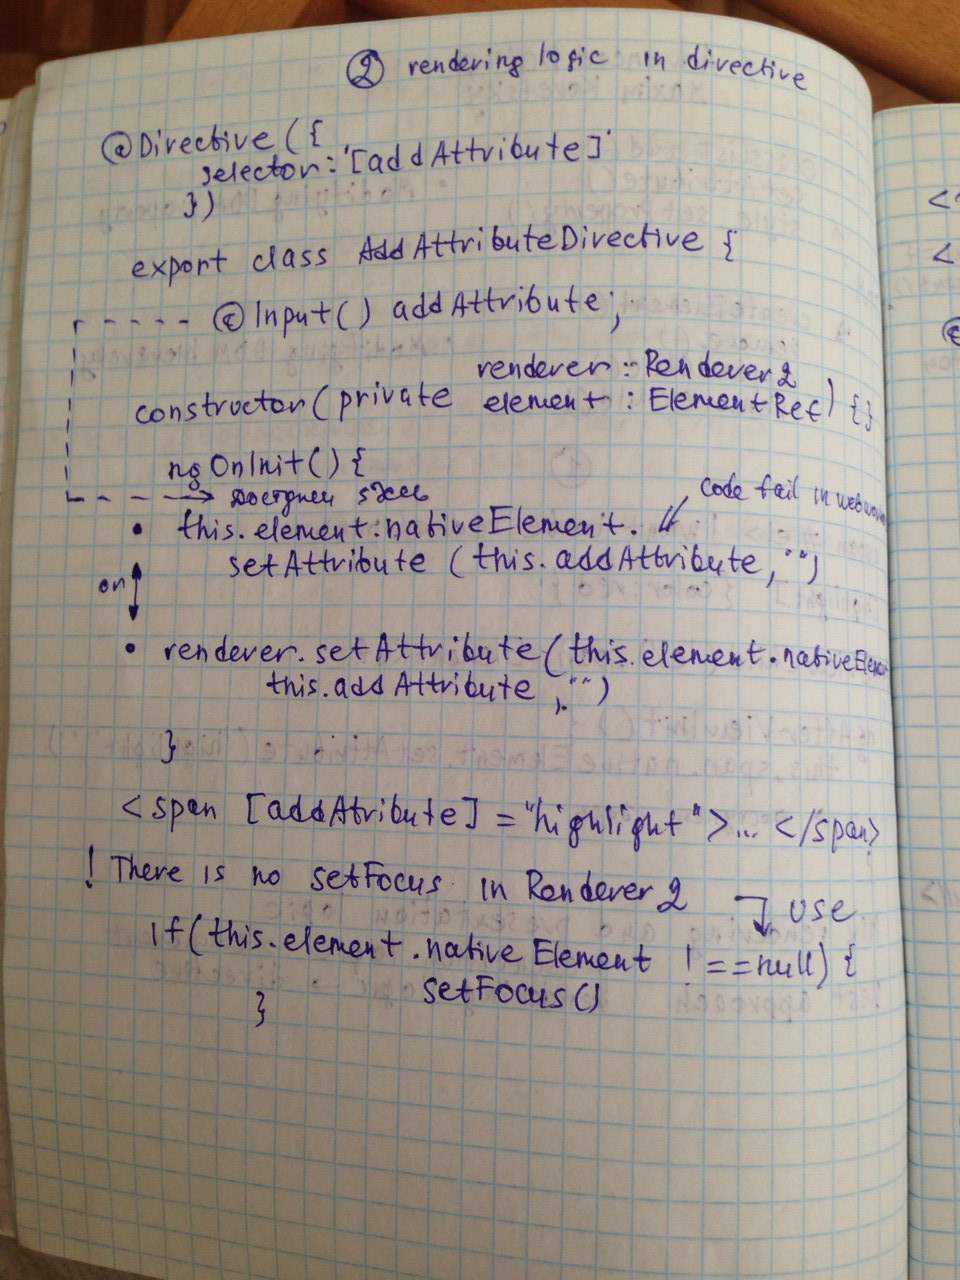 ② rendering logic in directive
@Directive({
selector: '[addAttribute]'
})
export class AddAttributeDirective {
@Input() addAttribute;
renderer : Renderer2
constructor(private element : ElementRef) {}
ngOnInit() {
доступен здесь
code fail in webworke
• this.element.nativeElement.
setAttribute (this.addAttribute, "")
or
• renderer.setAttribute(this.element.nativeElemen
this.addAttribute, "")
}
<span [addAtribute] = "highlight">... </span>
! There is no setFocus in Renderer2
use
if(this.element.nativeElement !==null) {
setFocus()
}